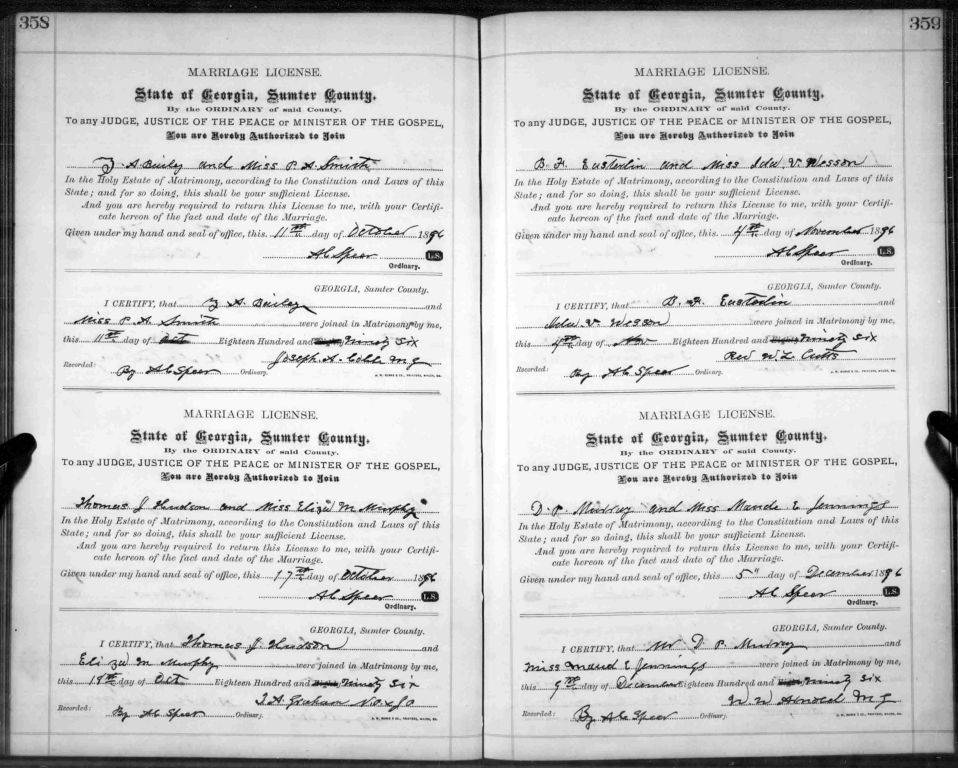 358
MARRIAGE LICENSE.
State of Georgia, Sumter County.
By the ORDINARY of said County.
To any JUDGE, JUSTICE OF THE PEACE or MINISTER OF THE GOSPEL,
You are Hereby Authorized to Join
A Bailey and Miss P. A. Smith
In the Holy Estate of Matrimony, according to the Constitution and Laws of this
State; and for so doing, this shall be your sufficient License.
And you are hereby required to return this License to me, with your Certifi-
cate hereon of the fact and date of the Marriage.
Given under my hand and seal of office, this 11th day of October 1896
A C Speer L.S.
Ordinary.
GEORGIA, Sumter County.
I CERTIFY, that A. Bailey and
Miss P. A. Smith were joined in Matrimony by me,
this 11th day of Oct Eighteen Hundred and Ninety Six
Joseph A. Cobb M G
Recorded: By A C Speer Ordinary.
MARRIAGE LICENSE.
State of Georgia, Sumter County.
By the ORDINARY of said County.
To any JUDGE, JUSTICE OF THE PEACE or MINISTER OF THE GOSPEL,
You are Hereby Authorized to Join
Thomas J Hudson and Miss Eliza M Murphy
In the Holy Estate of Matrimony, according to the Constitution and Laws of this
State; and for so doing, this shall be your sufficient License.
And you are hereby required to return this License to me, with your Certifi-
cate hereon of the fact and date of the Marriage.
Given under my hand and seal of office, this 17th day of October 1896
A C Speer L.S.
Ordinary.
GEORGIA, Sumter County.
I CERTIFY, that Thomas J. Hudson and
Eliza M Murphy were joined in Matrimony by me,
this 18th day of Oct Eighteen Hundred and Ninety Six
J. A. Graham N.P. & J P
Recorded: By A C Speer Ordinary.
359
MARRIAGE LICENSE.
State of Georgia, Sumter County.
By the ORDINARY of said County.
To any JUDGE, JUSTICE OF THE PEACE or MINISTER OF THE GOSPEL,
You are Hereby Authorized to Join
B. F. Easterlin and Miss Ida V. Wesson
In the Holy Estate of Matrimony, according to the Constitution and Laws of this
State; and for so doing, this shall be your sufficient License.
And you are hereby required to return this License to me, with your Certifi-
cate hereon of the fact and date of the Marriage.
Given under my hand and seal of office, this 4th day of November 1896
A C Speer L.S.
Ordinary.
GEORGIA, Sumter County.
I CERTIFY, that B. F. Easterlin and
Ida V. Wesson were joined in Matrimony by me,
this 4th day of Nov Eighteen Hundred and Ninety Six
Rev W. L. Cutts
Recorded: By A C Speer Ordinary.
MARRIAGE LICENSE.
State of Georgia, Sumter County.
By the ORDINARY of said County.
To any JUDGE, JUSTICE OF THE PEACE or MINISTER OF THE GOSPEL,
You are Hereby Authorized to Join
D. P. Murray and Miss Maude E Jennings
In the Holy Estate of Matrimony, according to the Constitution and Laws of this
State; and for so doing, this shall be your sufficient License.
And you are hereby required to return this License to me, with your Certifi-
cate hereon of the fact and date of the Marriage.
Given under my hand and seal of office, this 5" day of December 1896
A C Speer L.S.
Ordinary.
GEORGIA, Sumter County.
I CERTIFY, that Mr D P Murray and
Miss Maud E Jennings were joined in Matrimony by me,
this 9th day of December Eighteen Hundred and Ninety Six
W. W. Arnold M G
Recorded: By A C Speer Ordinary.